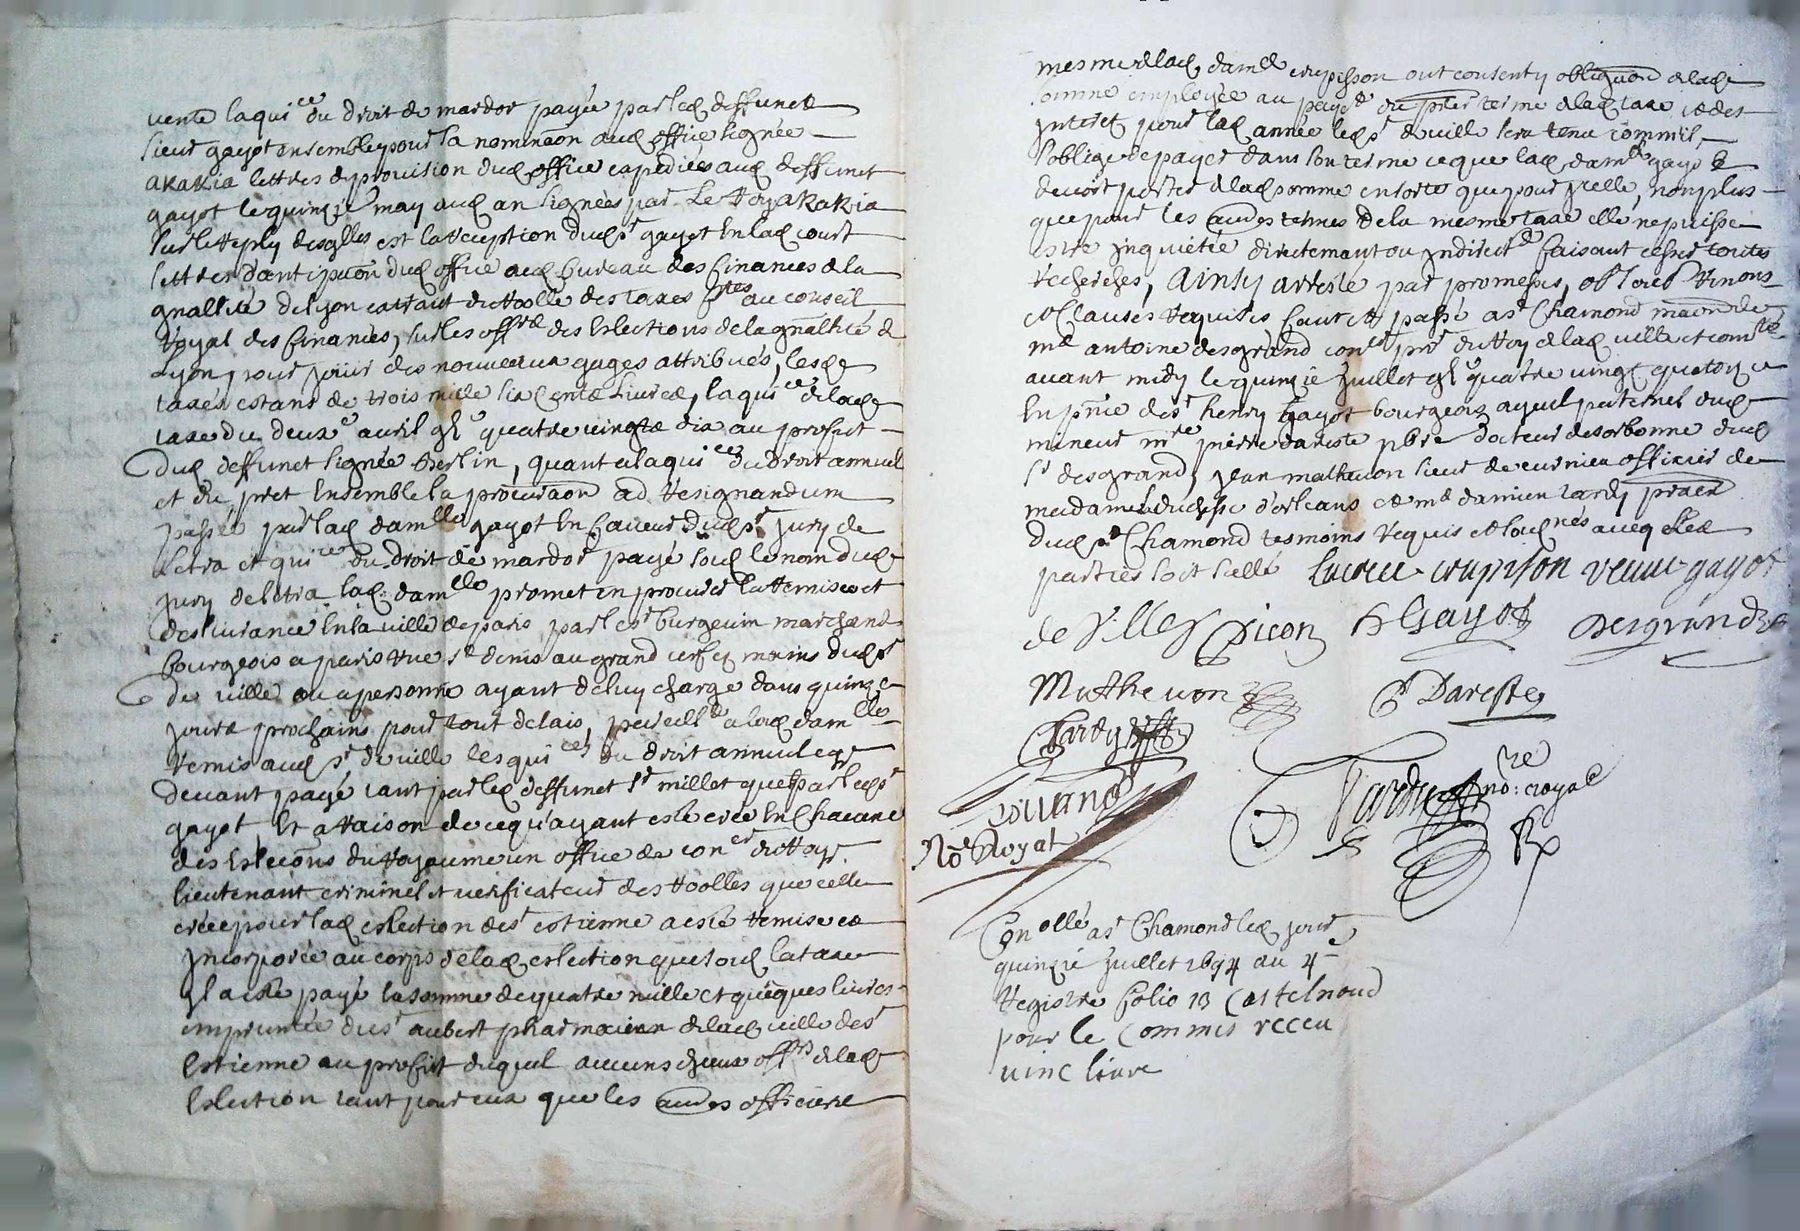 vente la quice du droit de mardor payée par led deffunct
sieur gayot ensemble pour la nomineon aud office signée
akakia lettres de provision dud office expédiées aud deffunct
gayot le quinzie may aud an signées par Le Roy akakia
sur le reply desqlles est la réception dud sr gayot en lad court
lettres d'ant dud office au bureau des finances de la
gnallité de lyon extrait du roolle des taxes au conseil
royal des finances, sur les offres des eslections de la gnallité de
Lyon pour jouir des nouveaux gages attribués, lesd
taxes estans de trois mille six cents livres, la quice de lad
taxe du deuxe avril gl quatre vingts dix au profict
dud deffunct signée Berlin, quant a la quice du droit annuel
et du prest ensemble la procuraon ad resignandum
passée par lad damlle gayot en faveur dud sr jury de
letra et quice du droit de mardor payé soud le nom dud
jury de letra lad damlle promet en procurer la remise et
deslivrance en la ville de paris par le sr burgevin marchand
bourgeois a paris rue st denis au grand cerf ez mains dud sr
de ville ou a personne ayant de luy charge dans quinze
jours prochains pour tout delais, pareille a lad damlle
remis aud sr de ville les quices du droit annuel
devant payé tant par led deffunct sr millet que par led sr
gayot, Et a raison de ce qu'ayant esté créé en chacune
des eslecons du royaume un office de coner du roy
lieutenant criminel et verificateur des roolles que celle
créée pour lad eslection de st estienne a esté remise et
incorporée au corps de lad eslection que soud la taxe
Il a esté payé la somme de quatre mille et quelques livres
empruntée du sr aubert pharmacien de lad ville de st
Estienne au profict duquel aucuns d'eux offrs de lad
Eslection tant pour eux que les autres officiers
mesme lad damlle crupisson ont consenty obligaon de lad
somme employée au payet du pner terme de lad taxe et des
interets pour lad année led sr de ville sera tenu comme il
s'oblige de payer dans son terme ce que lad damlle gayot
devoit porter de lad somme en sorte que pour icelle, non plus
que pour les autres termes de la mesme taxe elle ne puisse
estre inquiétée directemant ou indirect faisant cesser toutes
recherches, Ainsy arresté par promesses, obl renons
et Clauses requises faict et passé a st Chamond maison de
me antoine desgrand coner pr du roy de lad ville et comté
avant midy le quinzie Juillet gl quatre vingt quatorze
En pnce de sr henry gayot bourgeois ayeul paternel dud
mineur mre pierre dareste pbre docteur de sorbonne dud
sr desgrand, Jean mathevon sieur de curnieu officier de
madame duchesse d'orleans et me damien tardy praen
dud st Chamond tesmoins requis et soues avecq les
parties soit sellé Lucrece crupisson veuve gayot
de Ville Picon h Gayot Desgrand
Mathevon P Dareste
Tardy
Tardy nore royal
Nore Royal
Conollé a st Chamond led jour
quinzie Juillet 1694 au 4e
registre folio 13 Castelnoud
pour le Commis receu
vinc livre